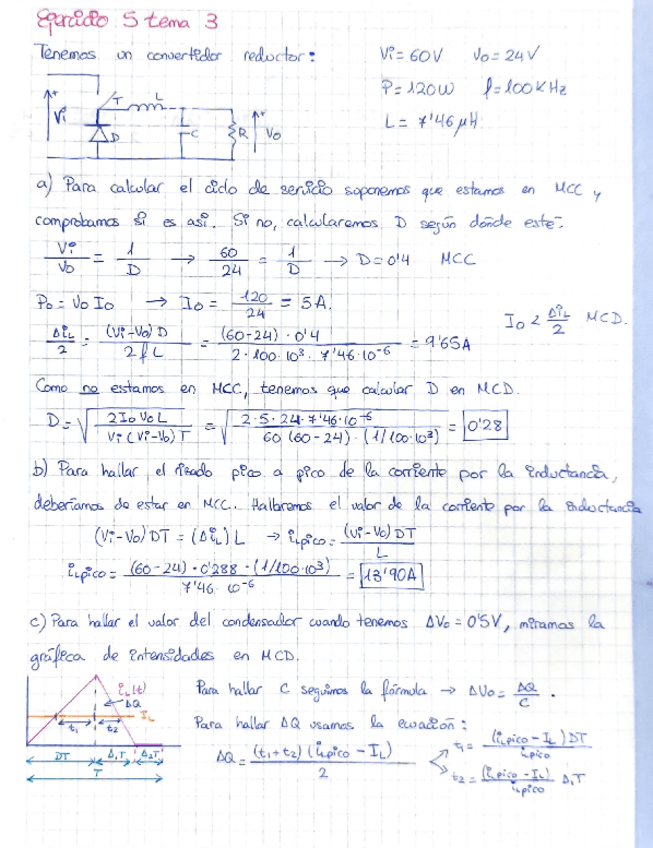 Ejercicio 5 tema 3
Tenemos un convertidor reductor: Vi = 60V Vo = 24V
P = 120W f = 100KHz
L = 7'46 μH
+ Vi T L D C R + Vo
a) Para calcular el ciclo de servicio soponemos que estamos en MCC y
comprobamos si es así. Si no, calcularemos D según donde esté.
Vi/Vo = 1/D → 60/24 = 1/D → D = 0'4 MCC
Po = Vo Io → Io = 120/24 = 5A.
Io < ΔiL/2 MCD.
ΔiL/2 = (Vi-Vo) D / 2fL = (60-24) · 0'4 / 2·100·10³ · 7'46·10⁻⁶ = 9'65A
Como no estamos en MCC, tenemos que calcular D en MCD.
D = √(2 Io Vo L / Vi (Vi-Vo) T) = √(2·5·24·7'46·10⁻⁶ / 60 (60-24) · (1/100·10³)) = 0'28
b) Para hallar el rizado pico a pico de la corriente por la inductancia,
deberíamos de estar en MCC. Hallaremos el valor de la corriente por la inductancia
(Vi-Vo) DT = (ΔiL) L → iLpico = (Vi-Vo) DT / L
iLpico = (60-24) · 0'288 · (1/100·10³) / 7'46·10⁻⁶ = 13'90A
c) Para hallar el valor del condensador cuando tenemos ΔVo = 0'5V, miramos la
gráfica de intensidades en MCD.
iL(t) ΔQ IL t1 t2 DT Δ1T Δ2T T
Para hallar C seguimos la fórmula → ΔVo = ΔQ/C.
Para hallar ΔQ usamos la ecuación:
ΔQ = (t1+t2) (iLpico - IL) / 2
t1 = (iLpico - IL) DT / iLpico
t2 = (iLpico - IL) Δ1T / iLpico